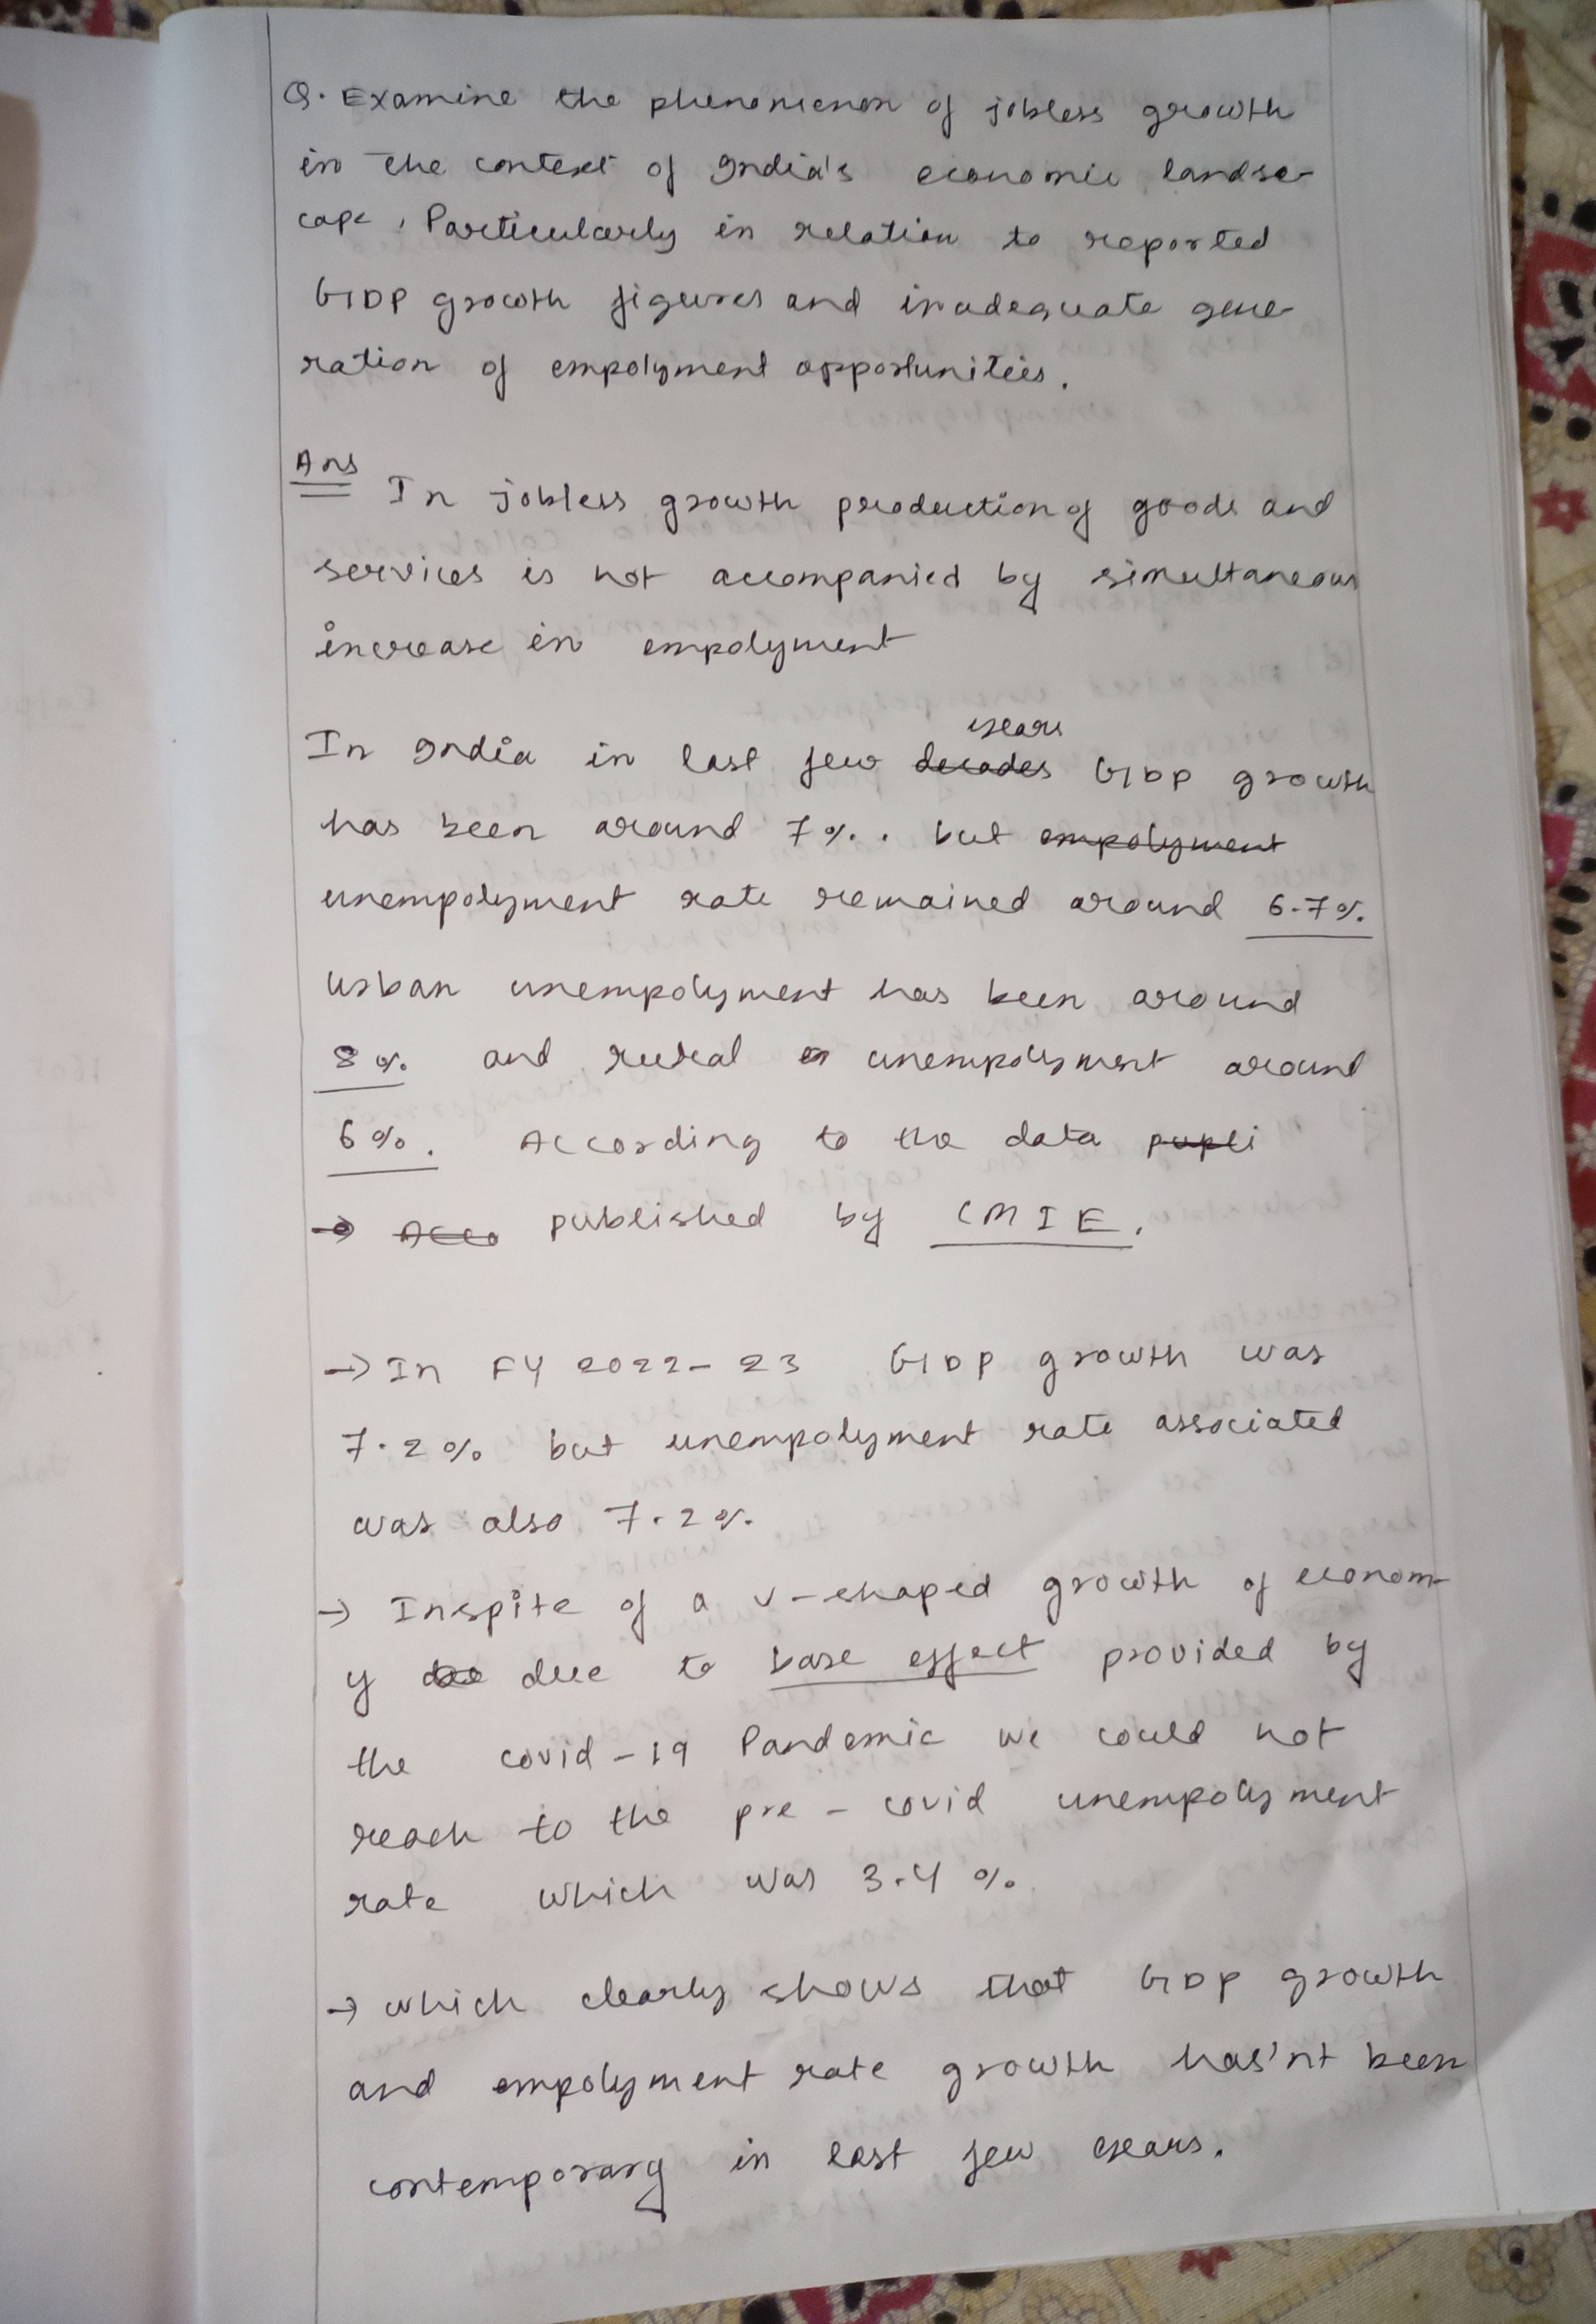 Q. Examine the phenomenon of jobless growth
in the context of India's economic landse-
cape, Particularly in relation to reported
GDP growth figures and inadequate gene-
ration of empolyment opportunities.
Ans
In jobless growth production of goods and
services is not accompanied by simultaneous
increase in empolyment
years
In India in last few decades GDP growth
has been around 7%. but empolyment
unempolyment rate remained around 6-7%.
Urban unempolyment has been around
8% and rural unempolyment around
6%. According to the data pupli
→ Acco published by CMIE.
→ In FY 2022-23 GDP growth was
7.2% but unempolyment rate associated
was also 7.2%.
→ Inspite of a v-shaped growth of econom-
y due to base effect provided by
the covid-19 Pandemic we could not
reach to the pre-covid unempolyment
rate which was 3.4%.
→ which clearly shows that GDP growth
and empolyment rate growth has'nt been
contemporary in last few years.